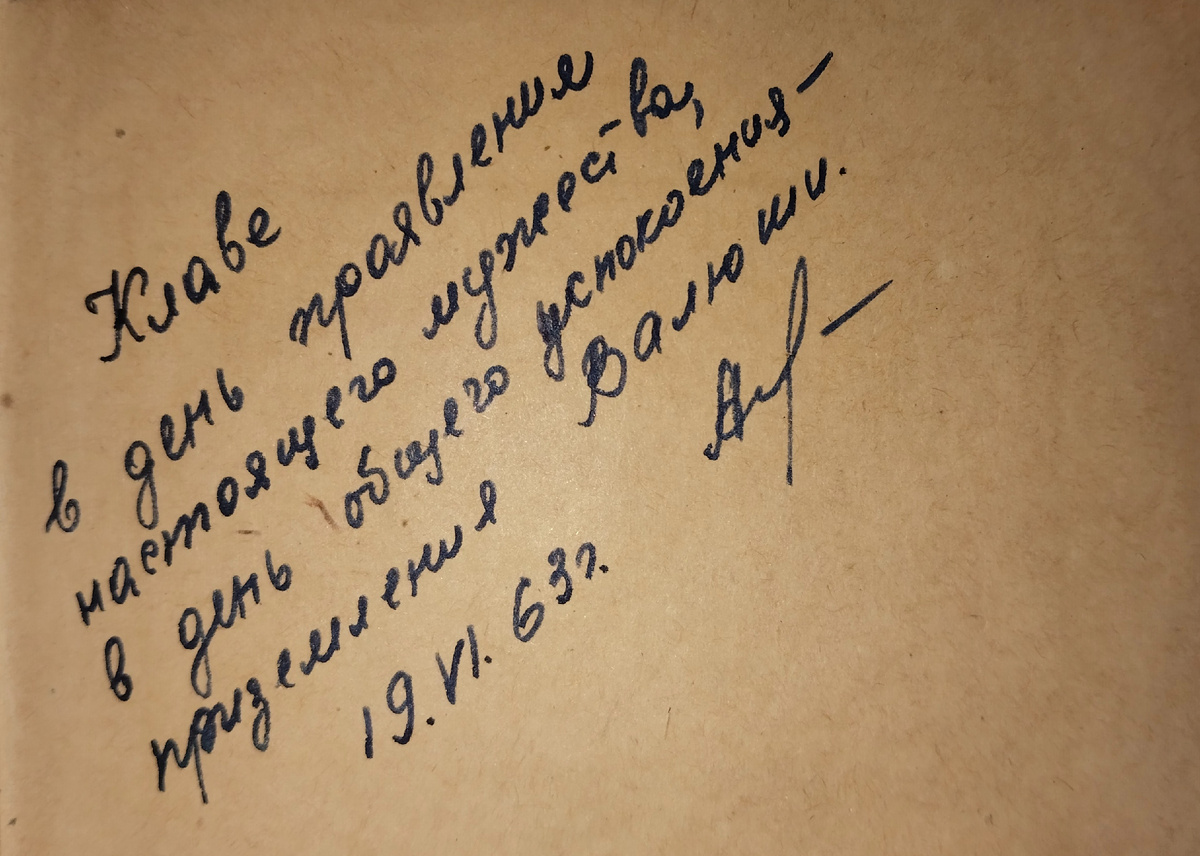 Клаве
в день проявления
настоящего мужества,
в день общего успокоения -
приземления Валюши.
19.VI.63г.